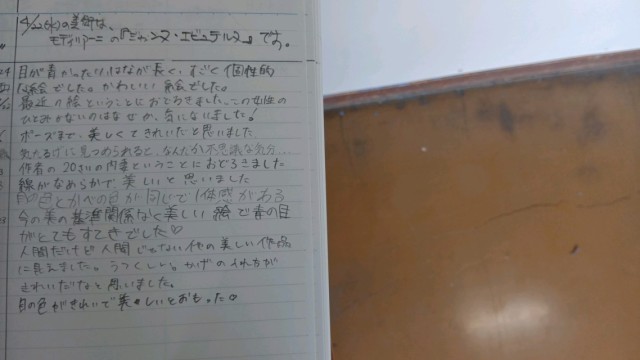 4/22(水)の美術は、
モディリアーニの『ジャンヌ・エビュテルヌ』です。
目が青かったりはなが長く、すごく個性的
な絵でした。かわいい絵でした。
最近の絵ということにおどろきました。この女性の
ひとみがないのはなぜか、気になりました!
ポーズまで、美しくてきれいだと思いました
見つめられると、なんだか不思議な気分…
作者の20さいの内妻ということにおどろきました
線がなめらかで美しいと思いました
目の色とかべの色が同じで一体感がある
今の美の基準関係なく美しい絵で青の目
がとてもすてきでした♡
人間だけど人間じゃない他の美しい作品
に見えました。うつくしい。かげの入れ方が
きれいだなと思いました。
目の色がきれいで美しいとおもった♡